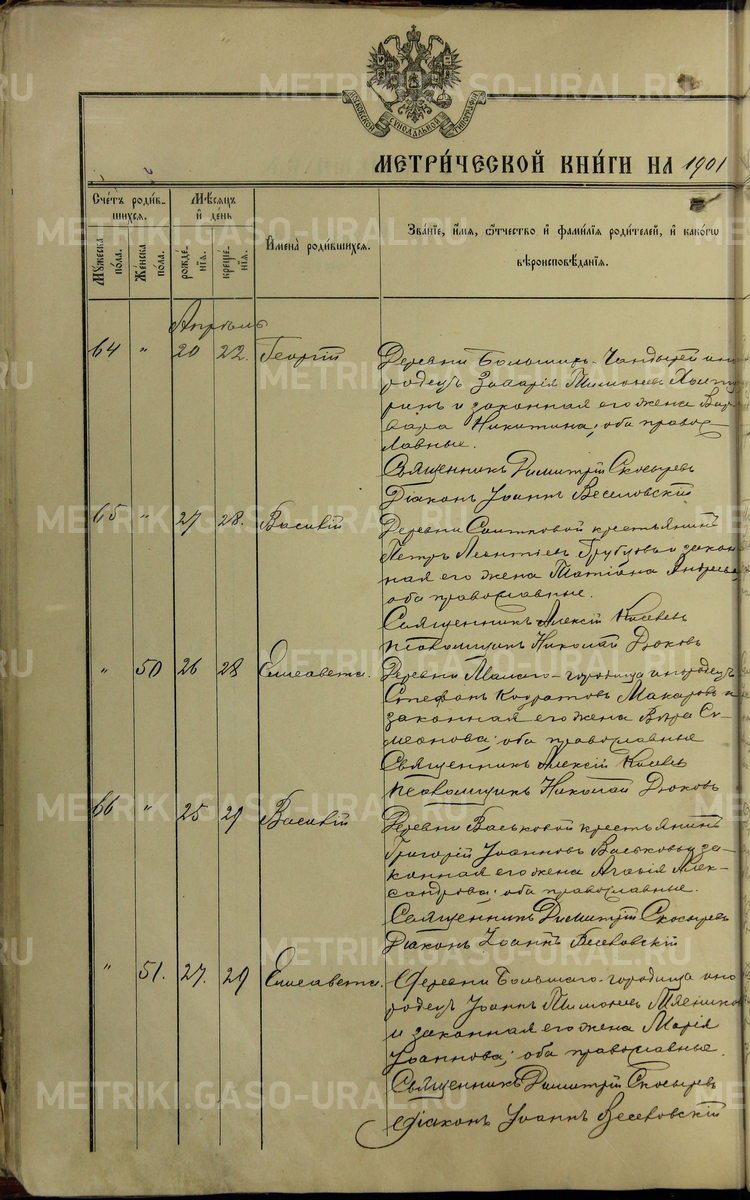 МОСКОВСКОЙ СѴНОДАЛЬНОЙ ТИПОГРАФІИ
МЕТРИ́ЧЕСКОЙ КНИ́ГИ НА 1901
Сче́тъ роди́в-
шихся.
Мѣ́сяцъ
и́ день
Му́жеска
по́ла.
Же́нска
по́ла.
рожде́-
нїя.
креще́-
нїя.
И́мена̀ роди́вшихся.
Зва́нїе, и́мя, ѻ́тчество и́ фами́лїя роди́телей, и́ како́гѡ
вѣроисповѣ́данїя.
Апрѣль
64 " 20 22. Георгій
Деревни Большихъ-Чандырей ино
родецъ Захарія Тимоѳеевъ
и законная его жена Вар
вара Никитина; оба право
славные.
Священникъ Димитрій Скосыревъ
Діаконъ Іоаннъ Веселовскій
65 " 27 28. Василій
Деревни крестьянинъ
Петръ Леонтіевъ и закон
ная его жена Татіана Андреева
оба православные.
Священникъ Алексій
Псаломщикъ Николай Дюковъ
" 50 26 28 Елисавета.
Деревни Малаго-городища инородецъ
Стефанъ Кодратовъ Макаровъ и
законная его жена Вѣра Си
меонова; оба православные
Священникъ Алексій
Псаломщикъ Николай Дюковъ
66 " 25 29 Василій
Деревни Васьковой крестьянинъ
Григорій Іоанновъ Васьковъ и за-
конная его жена Агаѳія Алек-
сандрова; оба православные.
Священникъ Димитрій Скосыревъ
Діаконъ Іоаннъ Веселовскій
" 51. 27. 29 Елисавета.
Деревни Большаго-городища ино
родецъ Іоаннъ Тимоѳеевъ
и законная его жена Марія
Іоаннова; оба православные.
Священникъ Димитрій Скосыревъ
Діаконъ Іоаннъ Веселовскій
METRIKI.GASO-URAL.RU